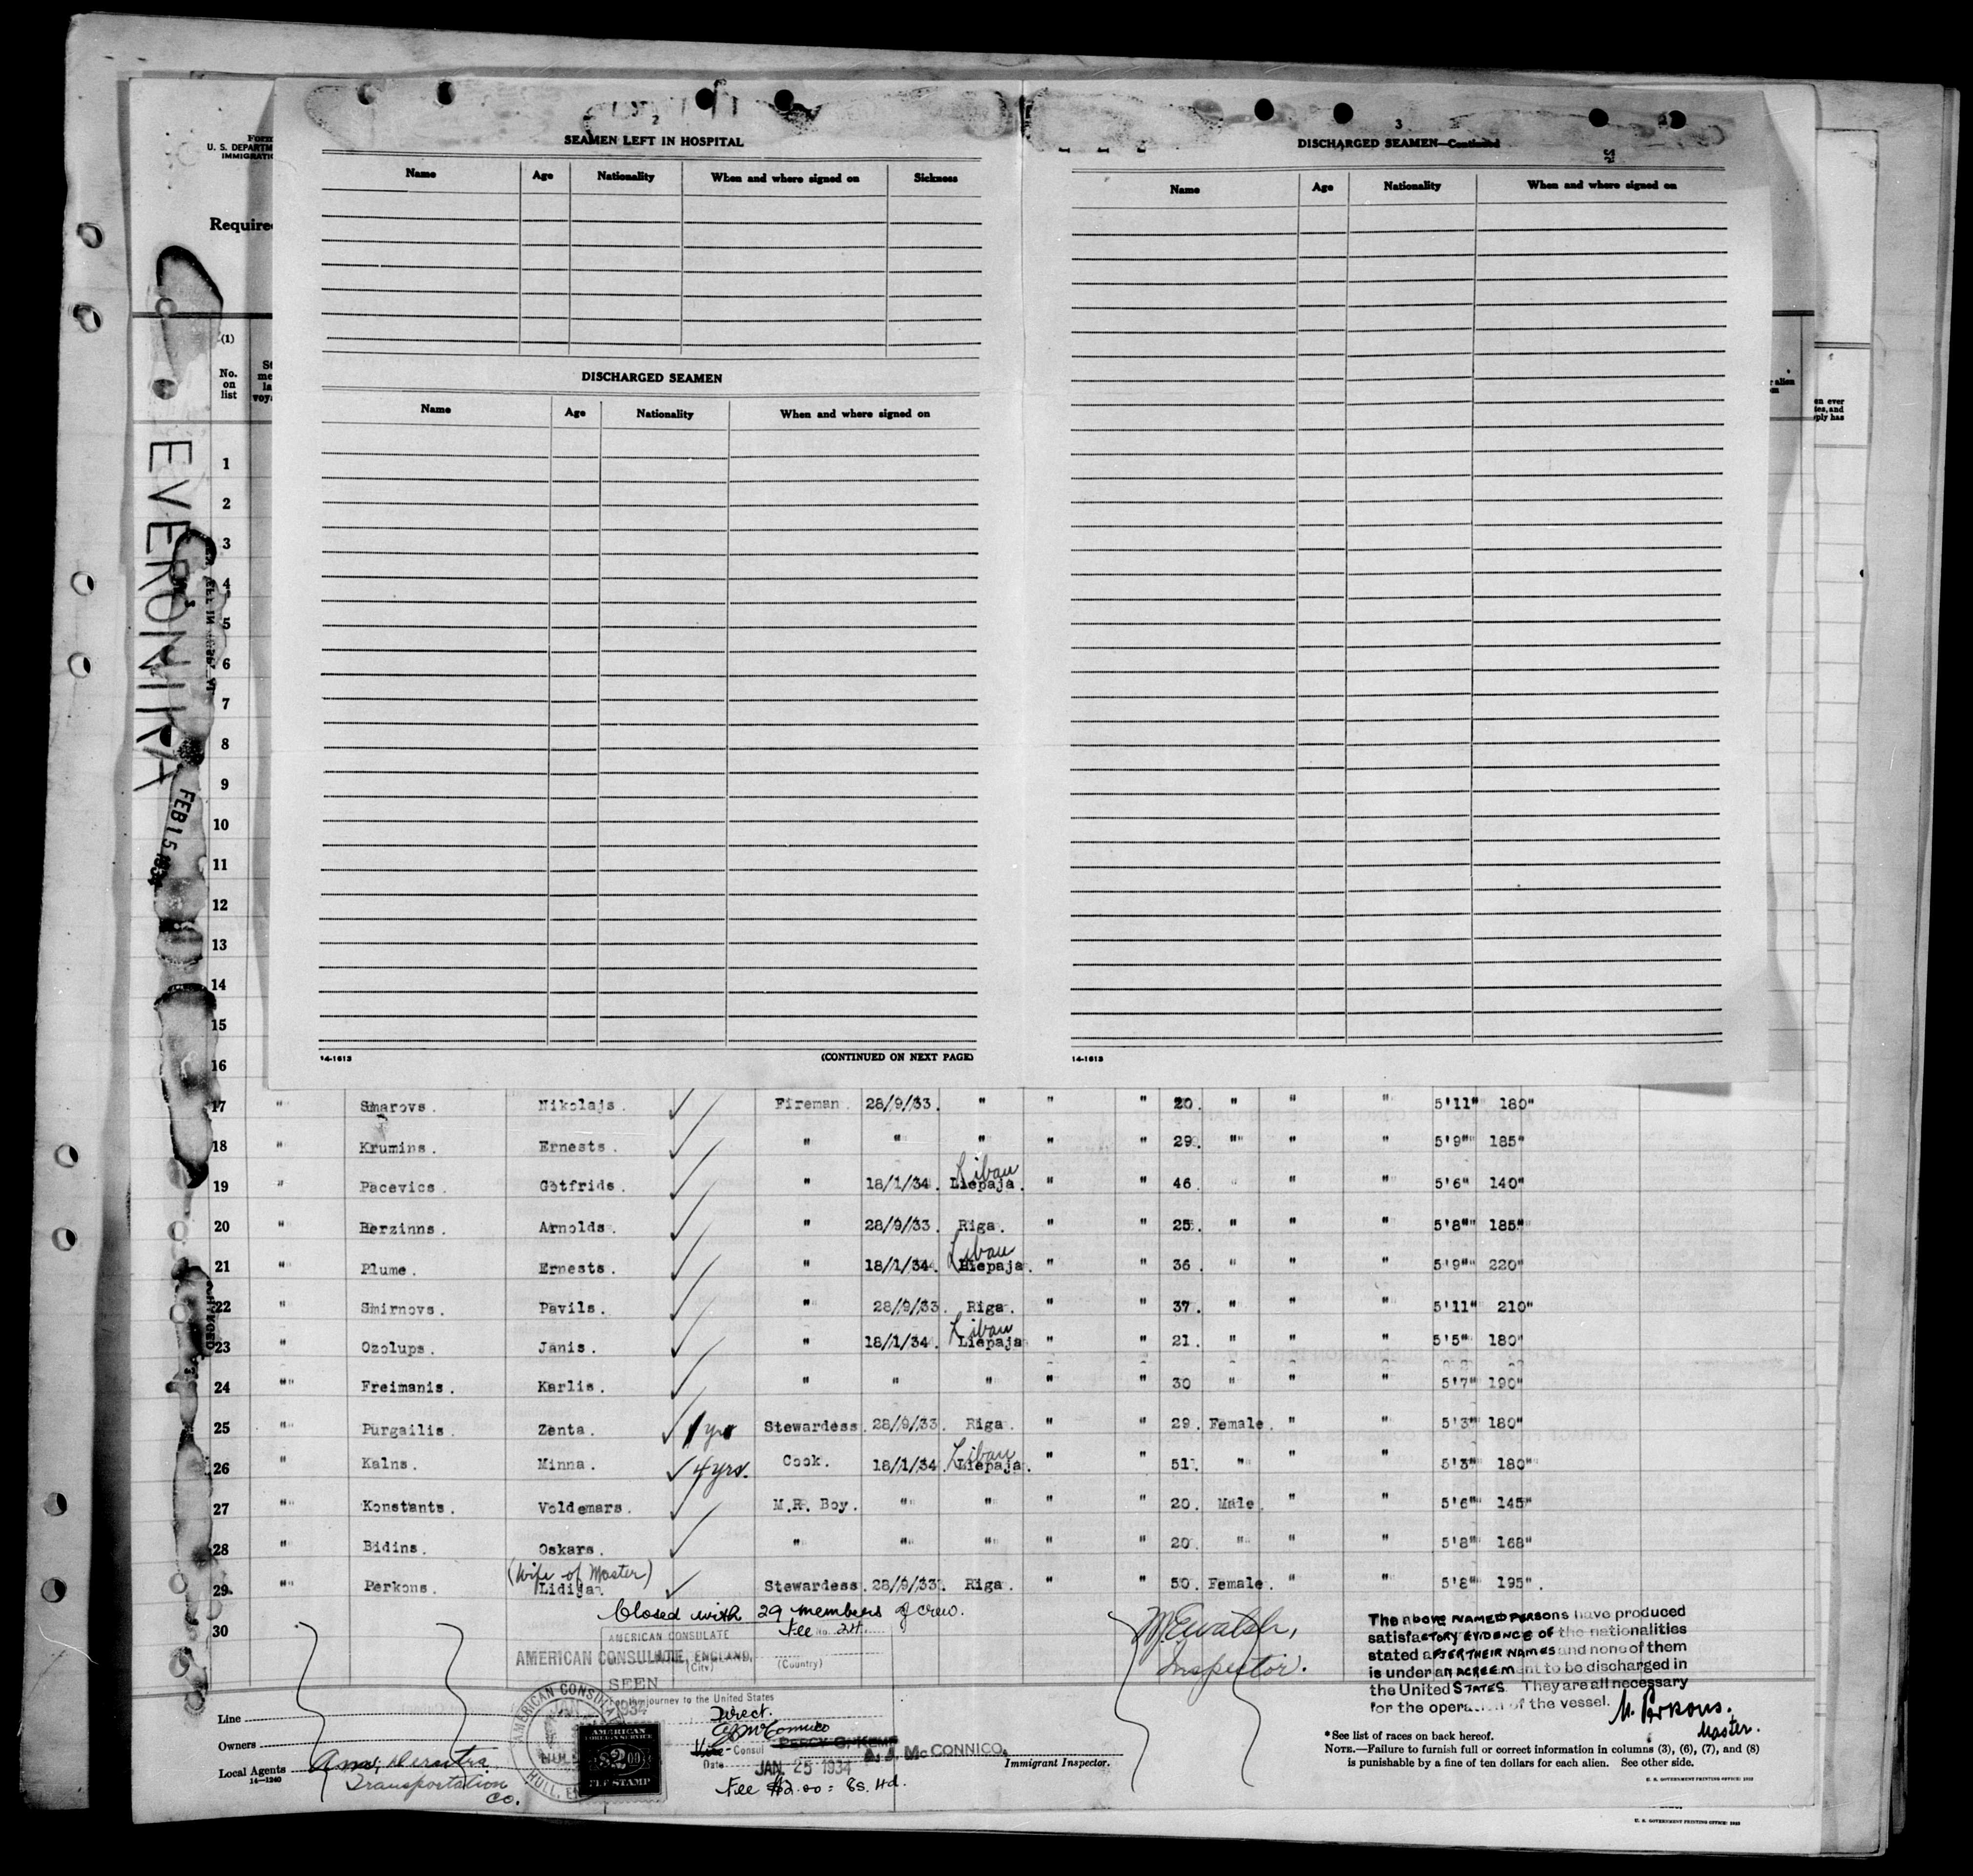 2
SEAMEN LEFT IN HOSPITAL
Name Age Nationality When and where signed on Sickness
DISCHARGED SEAMEN
Name Age Nationality When and where signed on
14-1613 (CONTINUED ON NEXT PAGE)
3
DISCHARGED SEAMEN—Continued
Name Age Nationality When and where signed on
14-1613
Form
U. S. DEPARTM
IMMIGRATIO
Require
(1)
No. on list
EVERONIKA
FEB 15 1934
1
2
3
4
5
6
7
8
9
10
11
12
13
14
15
16
17 " Smarovs. Nikolajs. ✓ Fireman. 28/9/33. " " " 20. " " " 5'11" 180"
18 " Krumins. Ernests. ✓ " " " " " 29. " " " 5'9" 185"
19 " Pacevics. Gotfrids. ✓ " 18/1/34. Liepaja. Libau " " 46 " " " 5'6" 140"
20 " Berzinns. Arnolds. ✓ " 28/9/33. Riga. " " 25. " " " 5'8" 185"
21 " Plume. Ernests. ✓ " 18/1/34. Liepaja. Libau " " 36 " " " 5'9" 220"
22 " Smirnovs. Pavils. ✓ " 28/9/33. Riga. " " 37. " " " 5'11" 210"
23 " Ozolups. Janis. ✓ " 18/1/34. Liepaja Libau " " 21. " " " 5'5" 180"
24 " Freimanis. Karlis. ✓ " " " " " 30 " " " 5'7" 190"
25 " Purgailis. Zenta. ✓ 1 yr Stewardess. 28/9/33. Riga. " " 29. Female. " " 5'3" 180"
26 " Kalns. Minna. ✓ 4 yrs. Cook. 18/1/34. Liepaja. Libau " " 51. " " " 5'3" 180"
27 " Konstants. Voldemars. ✓ M.R. Boy. " " " " 20. Male. " " 5'6" 145"
28 " Bidins. Oskars. ✓ " " " " " 20 " " " 5'8" 168"
(Wife of Master)
29. " Perkons. Lidija. ✓ Stewardess. 28/9/33. Riga. " " 50. Female. " " 5'8" 195".
Closed with 29 members of crew.
30
Fee No. 24
AMERICAN CONSULATE
AMERICAN CONSULATE HULL, ENGLAND.
(City) (Country)
SEEN
journey to the United States
Direct.
Vice Consul PERCY G. KEMP
A. J. McCONNICO.
Date JAN 25 1934
Fee $2.00 = 8s. 4d.
AMERICAN
FOREIGN SERVICE
$2.00
FEE STAMP
AMERICAN CONSULATE
HULL, ENG
Inspector.
Immigrant Inspector.
The above NAMED PERSONS have produced
satisfactory EVIDENCE OF the nationalities
stated AFTER THEIR NAMES and none of them
is under an AGREEMent to be discharged in
the United STATES They are all necessary
for the operation of the vessel. M. Perkons.
Master.
Line
Owners
Local Agents
14—1240
Transportation
Co.
*See list of races on back hereof.
NOTE.—Failure to furnish full or correct information in columns (3), (6), (7), and (8)
is punishable by a fine of ten dollars for each alien. See other side.
U. S. GOVERNMENT PRINTING OFFICE: 1932
U. S. GOVERNMENT PRINTING OFFICE: 1932